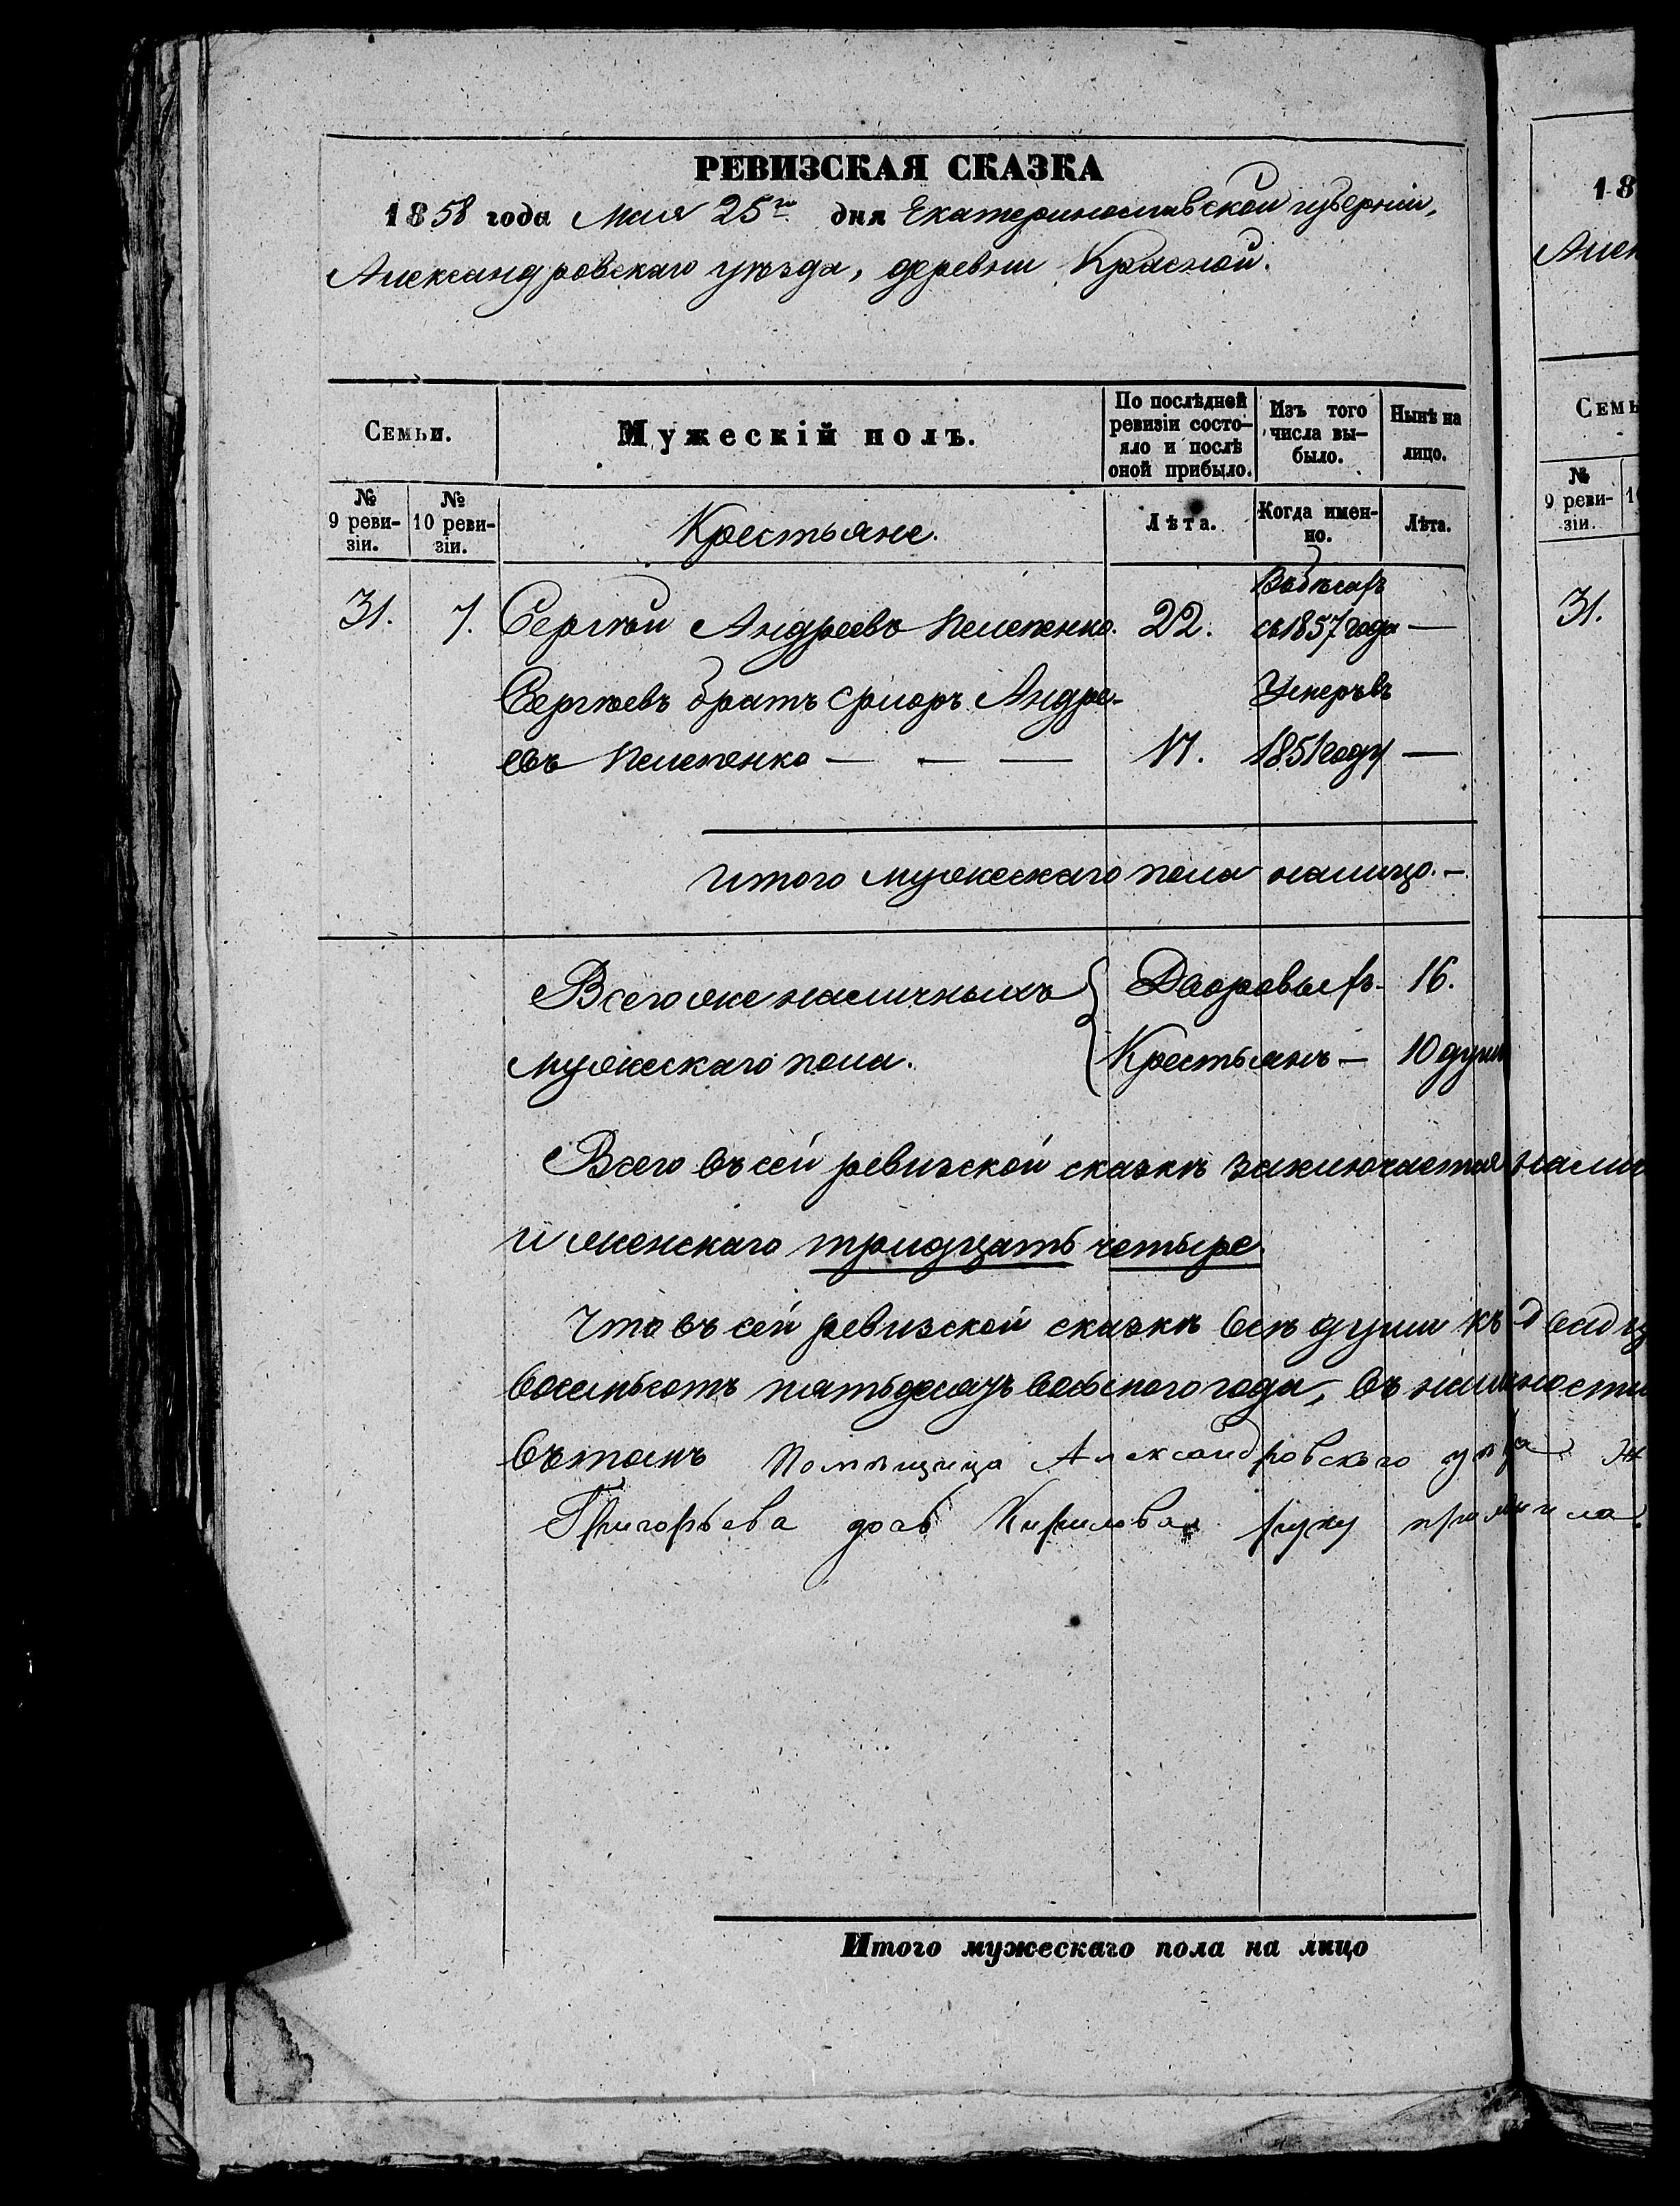 РЕВИЗСКАЯ СКАЗКА
1858 года Мая 25го дня Екатеринославской губерніи,
Александровскаго уѣзда, деревни Красной.
Семьи.
Мужескій полъ.
По послѣдней ревизіи состо-
яло и послѣ оной прибыло.
Изъ того числа вы-
было.
Нынѣ на лицо.
№ 9 реви-
зіи.
№ 10 реви-
зіи.
Крестьяне.
Лѣта.
Когда имен-
но.
Лѣта.
31. 7. Сергѣй Андреевъ 22. Въ бѣгахъ съ 1857 года —
Сергѣевъ братъ Андре-
евъ — — — 17. Умеръ въ 1851 году —
Итого мужескаго пола налицо. —
Всего же наличныхъ { Дворовыхъ - 16.
мужескаго пола. Крестьянъ — 10 душъ
Всего въ сей ревизской сказкѣ заключается налич
и женскаго тридцать четыре.
Что въ сей ревизской сказкѣ всѣ души къ двадц
восемьсотъ пятьдесятъ восьмого года, въ наличности
въ томъ Помѣщица Александровского
Григорьева дочь Кирилова руку приложила.
Итого мужескаго пола на лицо
18
Алек
Семь
№ 9 реви-
зіи.
31.